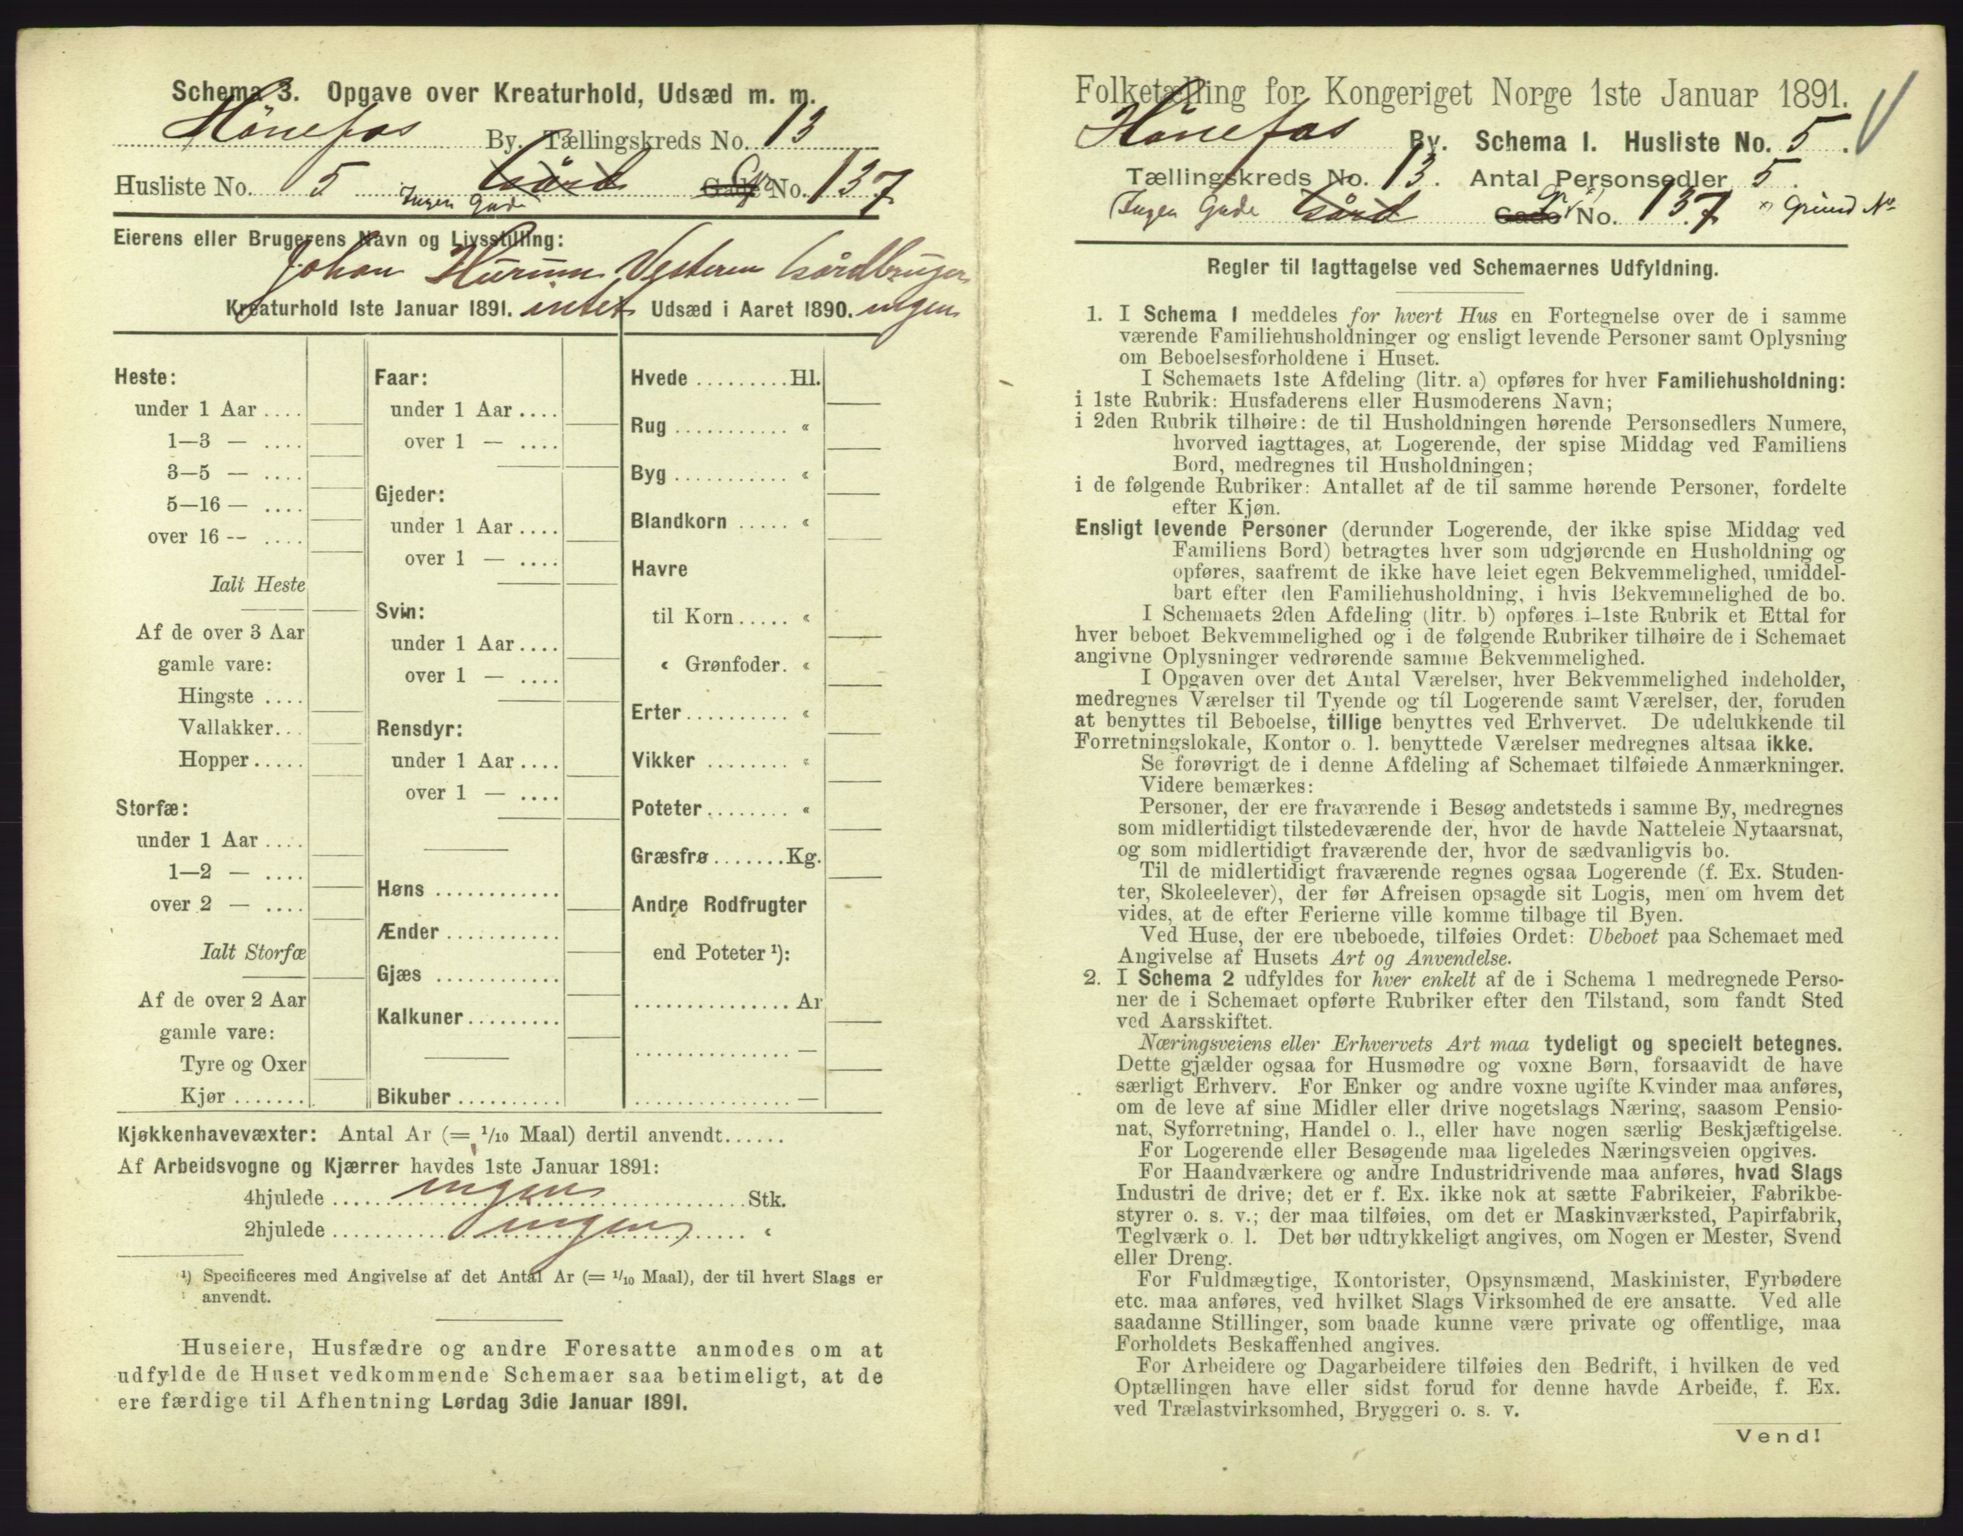 Schema 3. Opgave over Kreaturhold, Udsæd m. m.
Hönefos By. Tællingskreds No. 13
Husliste No. 5 Gård Gade No. 137
Ingen Gade
Eierens eller Brugerens Navn og Livsstilling:
Johan Hurum, Vesteren Gårdbruger
Kreaturhold 1ste Januar 1891. intet
Udsæd i Aaret 1890. ingen
Heste:
under 1 Aar ....
1—3 — ....
3—5 — ....
5—16 — ....
over 16 -- ....
Ialt Heste
Af de over 3 Aar
gamle vare:
Hingste ....
Vallakker...
Hopper.....
Storfæ:
under 1 Aar ....
1—2 — ....
over 2 — ....
Ialt Storfæ
Af de over 2 Aar
gamle vare:
Tyre og Oxer
Kjør .......
Faar:
under 1 Aar ....
over 1 — ....
Gjeder:
under 1 Aar ....
over 1 — ....
Svin:
under 1 Aar ....
over 1 — ....
Rensdyr:
under 1 Aar ....
over 1 — ....
Høns ............
Ænder ...........
Gjæs ............
Kalkuner.........
Bikuber ..........
Hvede ......... Hl.
Rug ........... «
Byg ........... «
Blandkorn ..... «
Havre
til Korn ..... «
« Grønfoder. «
Erter .......... «
Vikker ........ «
Poteter ........ «
Græsfrø ....... Kg.
Andre Rodfrugter
end Poteter ¹):
............... Ar
............... —
............... —
Kjøkkenhavevæxter: Antal Ar (= 1/10 Maal) dertil anvendt......
Af Arbeidsvogne og Kjærrer havdes 1ste Januar 1891:
4hjulede ..... ingen ..... Stk.
2hjulede ..... ingen ..... «
¹) Specificeres med Angivelse af det Antal Ar (= 1/10 Maal), der til hvert Slags er
anvendt.
Huseiere, Husfædre og andre Foresatte anmodes om at
udfylde de Huset vedkommende Schemaer saa betimeligt, at de
ere færdige til Afhentning Lørdag 3die Januar 1891.
Folketælling for Kongeriget Norge 1ste Januar 1891.
Hönefos By. Schema I. Husliste No. 5.
Tællingskreds No. 13. Antal Personsedler 5.
Ingen Gade Gård Gade No. 137 x) Grund No
Regler til Iagttagelse ved Schemaernes Udfyldning.
1. I Schema I meddeles for hvert Hus en Fortegnelse over de i samme
værende Familiehusholdninger og ensligt levende Personer samt Oplysning
om Beboelsesforholdene i Huset.
I Schemaets 1ste Afdeling (litr. a) opføres for hver Familiehusholdning:
i 1ste Rubrik: Husfaderens eller Husmoderens Navn;
i 2den Rubrik tilhøire: de til Husholdningen hørende Personsedlers Numere,
hvorved iagttages, at Logerende, der spise Middag ved Familiens
Bord, medregnes til Husholdningen;
i de følgende Rubriker: Antallet af de til samme hørende Personer, fordelte
efter Kjøn.
Ensligt levende Personer (derunder Logerende, der ikke spise Middag ved
Familiens Bord) betragtes hver som udgjørende en Husholdning og
opføres, saafremt de ikke have leiet egen Bekvemmelighed, umiddel-
bart efter den Familiehusholdning, i hvis Bekvemmelighed de bo.
I Schemaets 2den Afdeling (litr. b) opføres i 1ste Rubrik et Ettal for
hver beboet Bekvemmelighed og i de følgende Rubriker tilhøire de i Schemaet
angivne Oplysninger vedrørende samme Bekvemmelighed.
I Opgaven over det Antal Værelser, hver Bekvemmelighed indeholder,
medregnes Værelser til Tyende og til Logerende samt Værelser, der, foruden
at benyttes til Beboelse, tillige benyttes ved Erhvervet. De udelukkende til
Forretningslokale, Kontor o. l. benyttede Værelser medregnes altsaa ikke.
Se forøvrigt de i denne Afdeling af Schemaet tilføiede Anmærkninger.
Videre bemærkes:
Personer, der ere fraværende i Besøg andetsteds i samme By, medregnes
som midlertidigt tilstedeværende der, hvor de havde Natteleie Nytaarsnat,
og som midlertidigt fraværende der, hvor de sædvanligvis bo.
Til de midlertidigt fraværende regnes ogsaa Logerende (f. Ex. Studen-
ter, Skoleelever), der før Afreisen opsagde sit Logis, men om hvem det
vides, at de efter Ferierne ville komme tilbage til Byen.
Ved Huse, der ere ubeboede, tilføies Ordet: Ubeboet paa Schemaet med
Angivelse af Husets Art og Anvendelse.
2. I Schema 2 udfyldes for hver enkelt af de i Schema 1 medregnede Perso-
ner de i Schemaet opførte Rubriker efter den Tilstand, som fandt Sted
ved Aarsskiftet.
Næringsveiens eller Erhvervets Art maa tydeligt og specielt betegnes.
Dette gjælder ogsaa for Husmødre og voxne Børn, forsaavidt de have
særligt Erhverv. For Enker og andre voxne ugifte Kvinder maa anføres,
om de leve af sine Midler eller drive nogetslags Næring, saasom Pensio-
nat, Syforretning, Handel o. l., eller have nogen særlig Beskjæftigelse.
For Logerende eller Besøgende maa ligeledes Næringsveien opgives.
For Haandværkere og andre Industridrivende maa anføres, hvad Slags
Industri de drive; det er f. Ex. ikke nok at sætte Fabrikeier, Fabrikbe-
styrer o. s. v.; der maa tilføies, om det er Maskinværksted, Papirfabrik,
Teglværk o. l. Det bør udtrykkeligt angives, om Nogen er Mester, Svend
eller Dreng.
For Fuldmægtige, Kontorister, Opsynsmænd, Maskinister, Fyrbødere
etc. maa anføres, ved hvilket Slags Virksomhed de ere ansatte. Ved alle
saadanne Stillinger, som baade kunne være private og offentlige, maa
Forholdets Beskaffenhed angives.
For Arbeidere og Dagarbeidere tilføies den Bedrift, i hvilken de ved
Optællingen have eller sidst forud for denne havde Arbeide, f. Ex.
ved Trælastvirksomhed, Bryggeri o. s. v.
Vend!